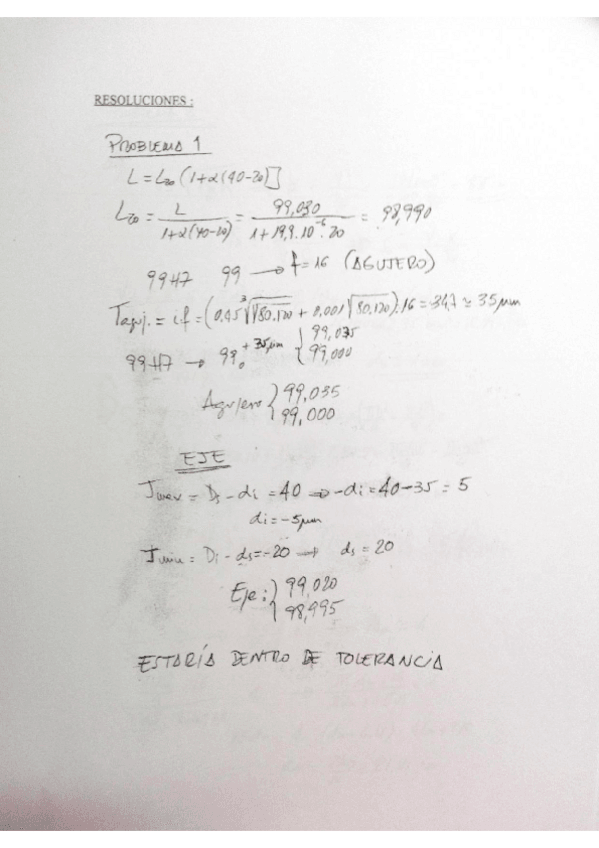 RESOLUCIONES :
PROBLEMA 1
L = L₂₀ (1+α(40-20)]
L₂₀ = L / 1+α(40-20) = 99,030 / 1+19,9.10⁻⁶.20 = 98,990
99H7 99 → f=16 (AGUJERO)
Taguj. = i.f = (0,45 ³√√80.120 + 0,001 √80.120).16 = 34,7 ≃ 35μm
99H7 → 99₀ +35μm { 99,035 99,000
Agujero } 99,035 99,000
EJE
Jmax = Ds - di = 40 ⇒ -di = 40-35 = 5
di = -5μm
Jmin = Di - ds = -20 → ds = 20
Eje : } 99,020 98,995
ESTARÍA DENTRO DE TOLERANCIA